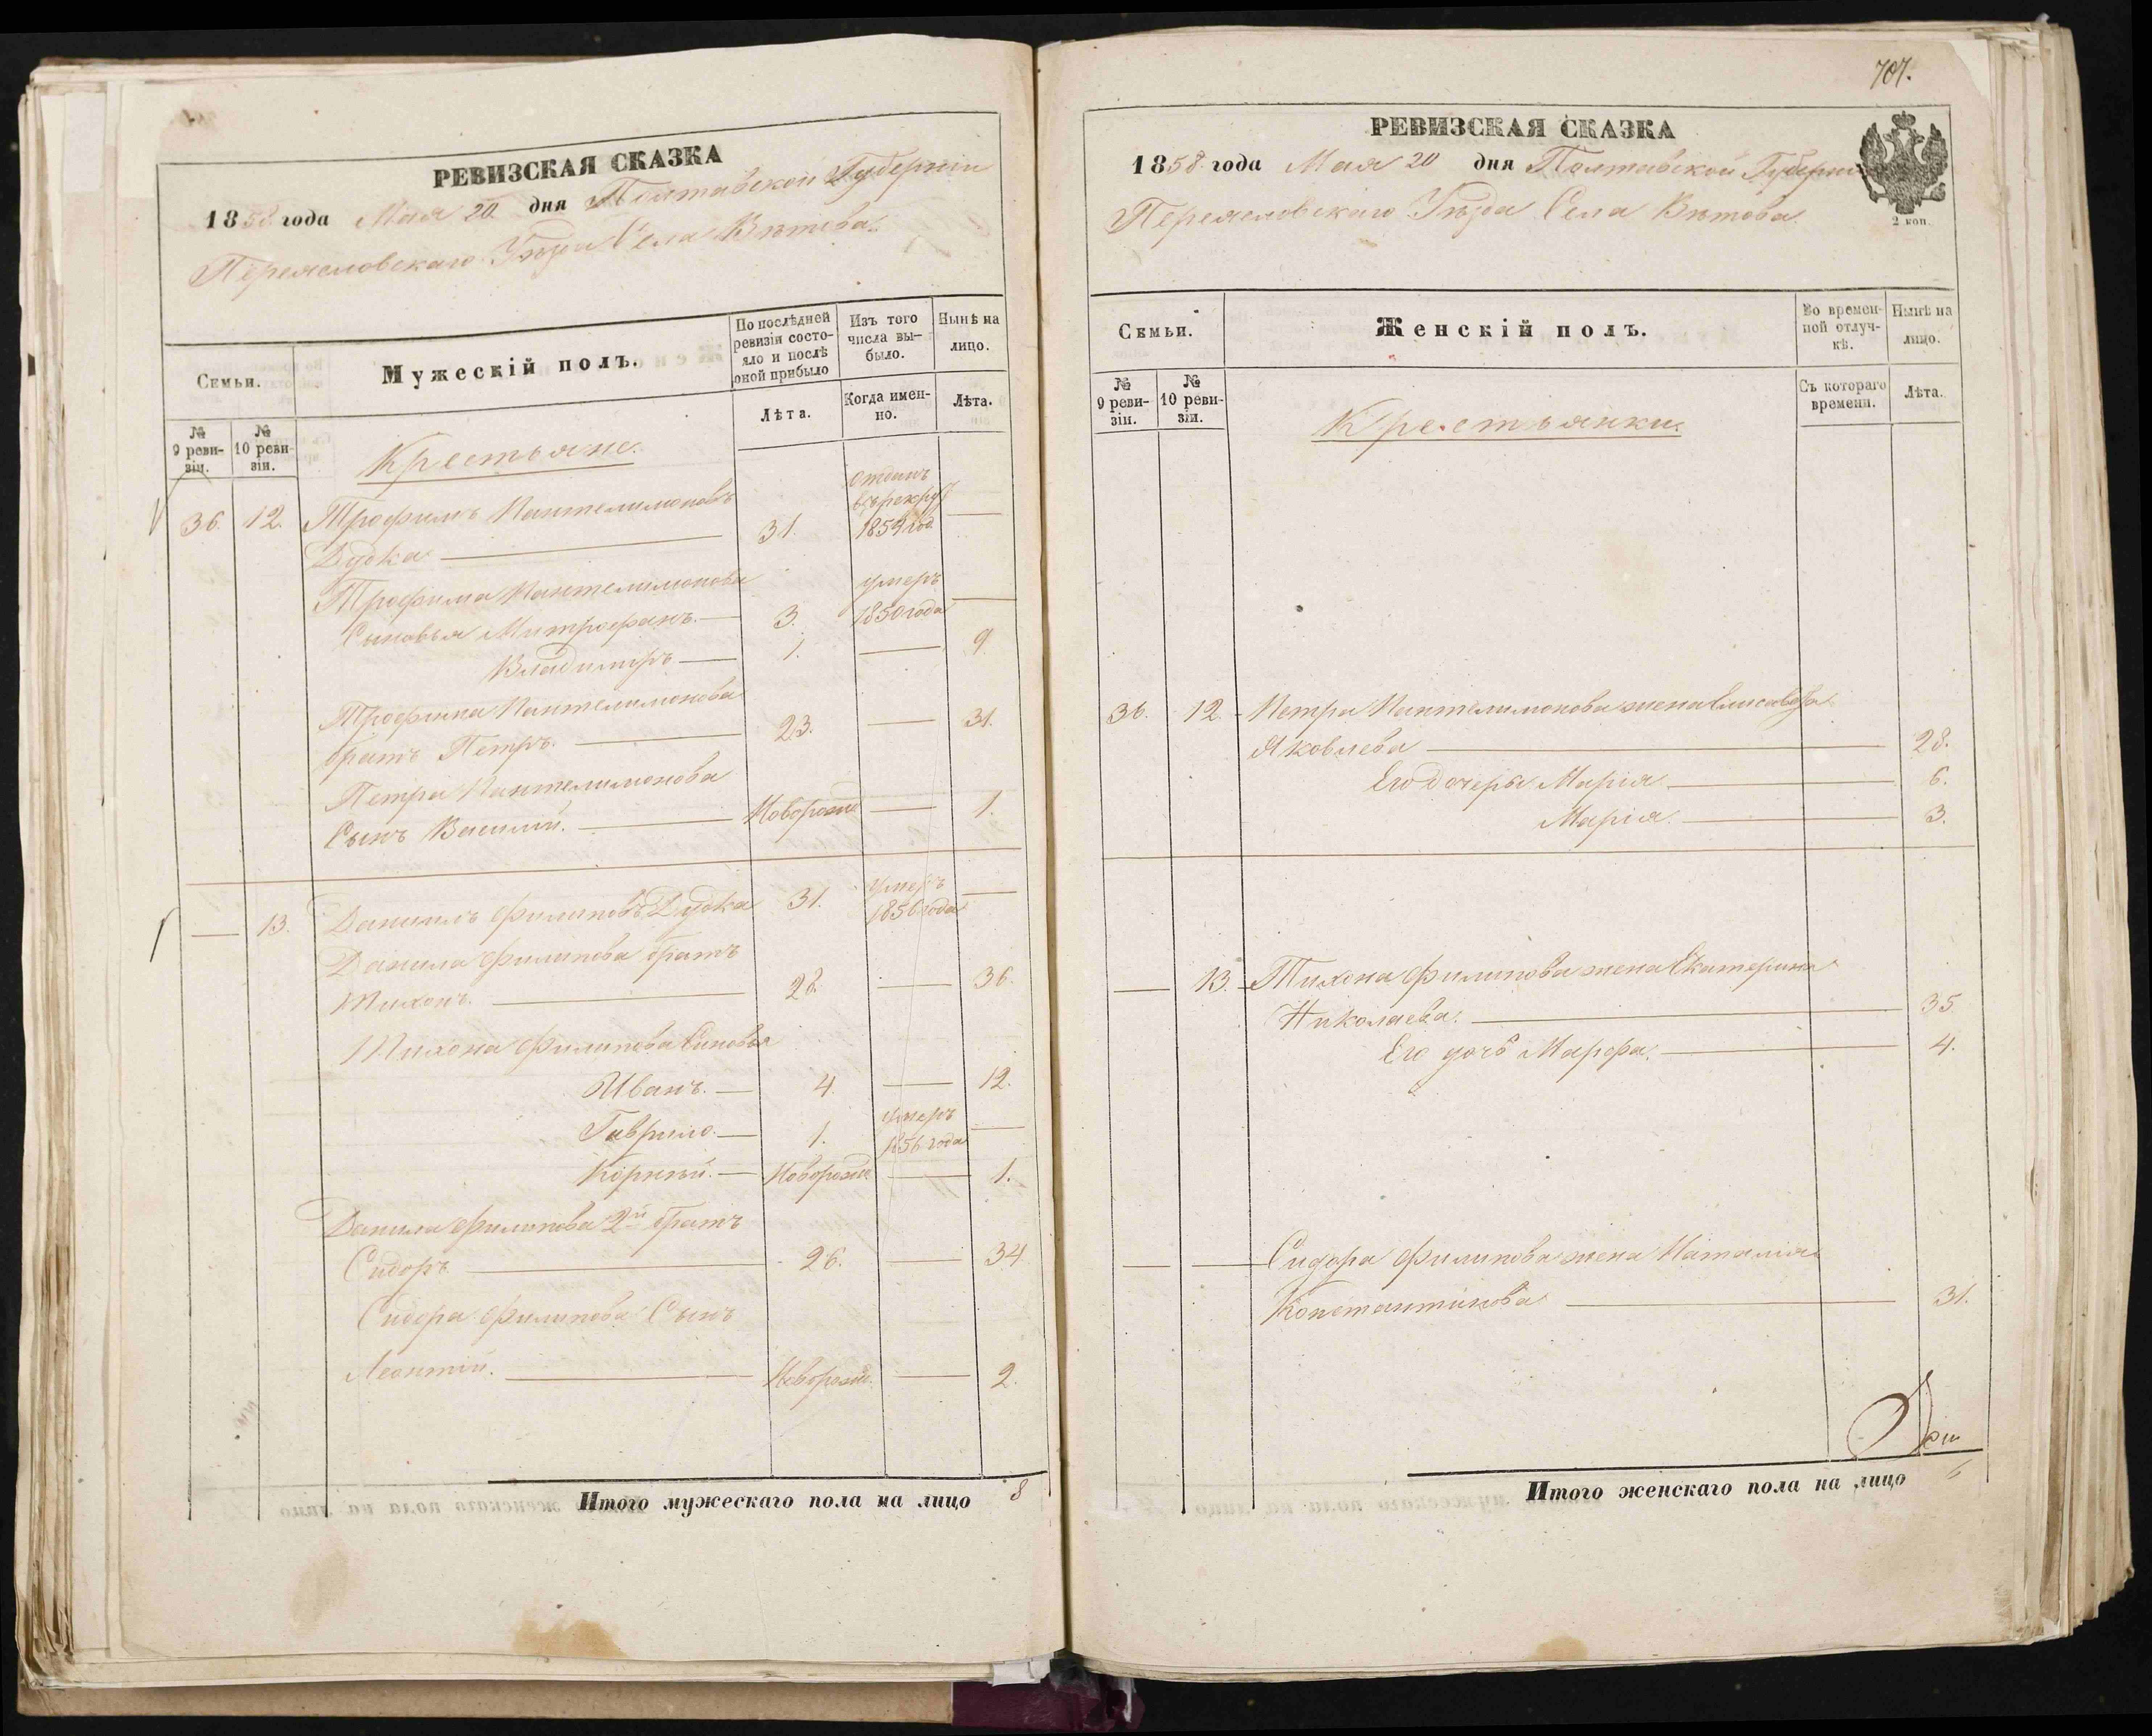 РЕВИЗСКАЯ СКАЗКА
1858 года Мая 20 дня Полтавской Губерніи
Переясловскаго Уѣзда Села Вѣтова.
Семьи.
Мужескій полъ.
По послѣдней ревизіи состо-
яло и послѣ
оной прибыло
Изъ того
числа вы-
было.
Нынѣ на
лицо.
№
9 реви-
зіи.
№
10 реви-
зіи.
Лѣта.
Когда имен-
но.
Лѣта.
Крестьяне.
36. 12. Трофимъ Пантелимоновъ
Дудка 31. Отданъ въ рекру 1854 год.
Трофима Пантелимонова
Сыновья Митрофанъ. 3. умеръ 1850 года
Владимиръ 1. 9.
Трофима Пантелимонова
братъ Петръ. 23. 31.
Петра Пантелимонова
Сынъ Василий. Новорожд 1.
13. Даниилъ Филиповъ Дудка 31. умеръ 1856 года
Данила Филипова братъ
Тихонъ. 28. 36.
Тихона Филипова Синовья
Иванъ. 4. 12.
Гаврило. 1. умеръ 1856 года
Корнѣй. Новорожд 1.
Данила Филипова 2й братъ
Сидоръ 26. 34
Сидора Филипова Сынъ
Леонтій. Новорожд. 2.
Итого мужескаго пола на лицо 8
707.
РЕВИЗСКАЯ СКАЗКА
1858 года Мая 20 дня Полтавской Губерніи
Переясловскаго Уѣзда Села Вѣтова.
2 коп.
Семьи.
Женскій полъ.
Во времен-
ной отлуч-
кѣ.
Нынѣ на
лицо.
№
9 реви-
зіи.
№
10 реви-
зіи.
Съ котораго
времени.
Лѣта.
Крестьянки.
36. 12. Петра Пантелимонова жена Елисавета
Яковлева 28.
Его дочери Марія 6.
Марія. 3.
13. Тихона Филипова жена Екатерина
Николаева. 35.
Его дочь Марфа. 4.
Сидора Филипова жена Наталія
Константинова 31.
Итого женскаго пола на лицо 6